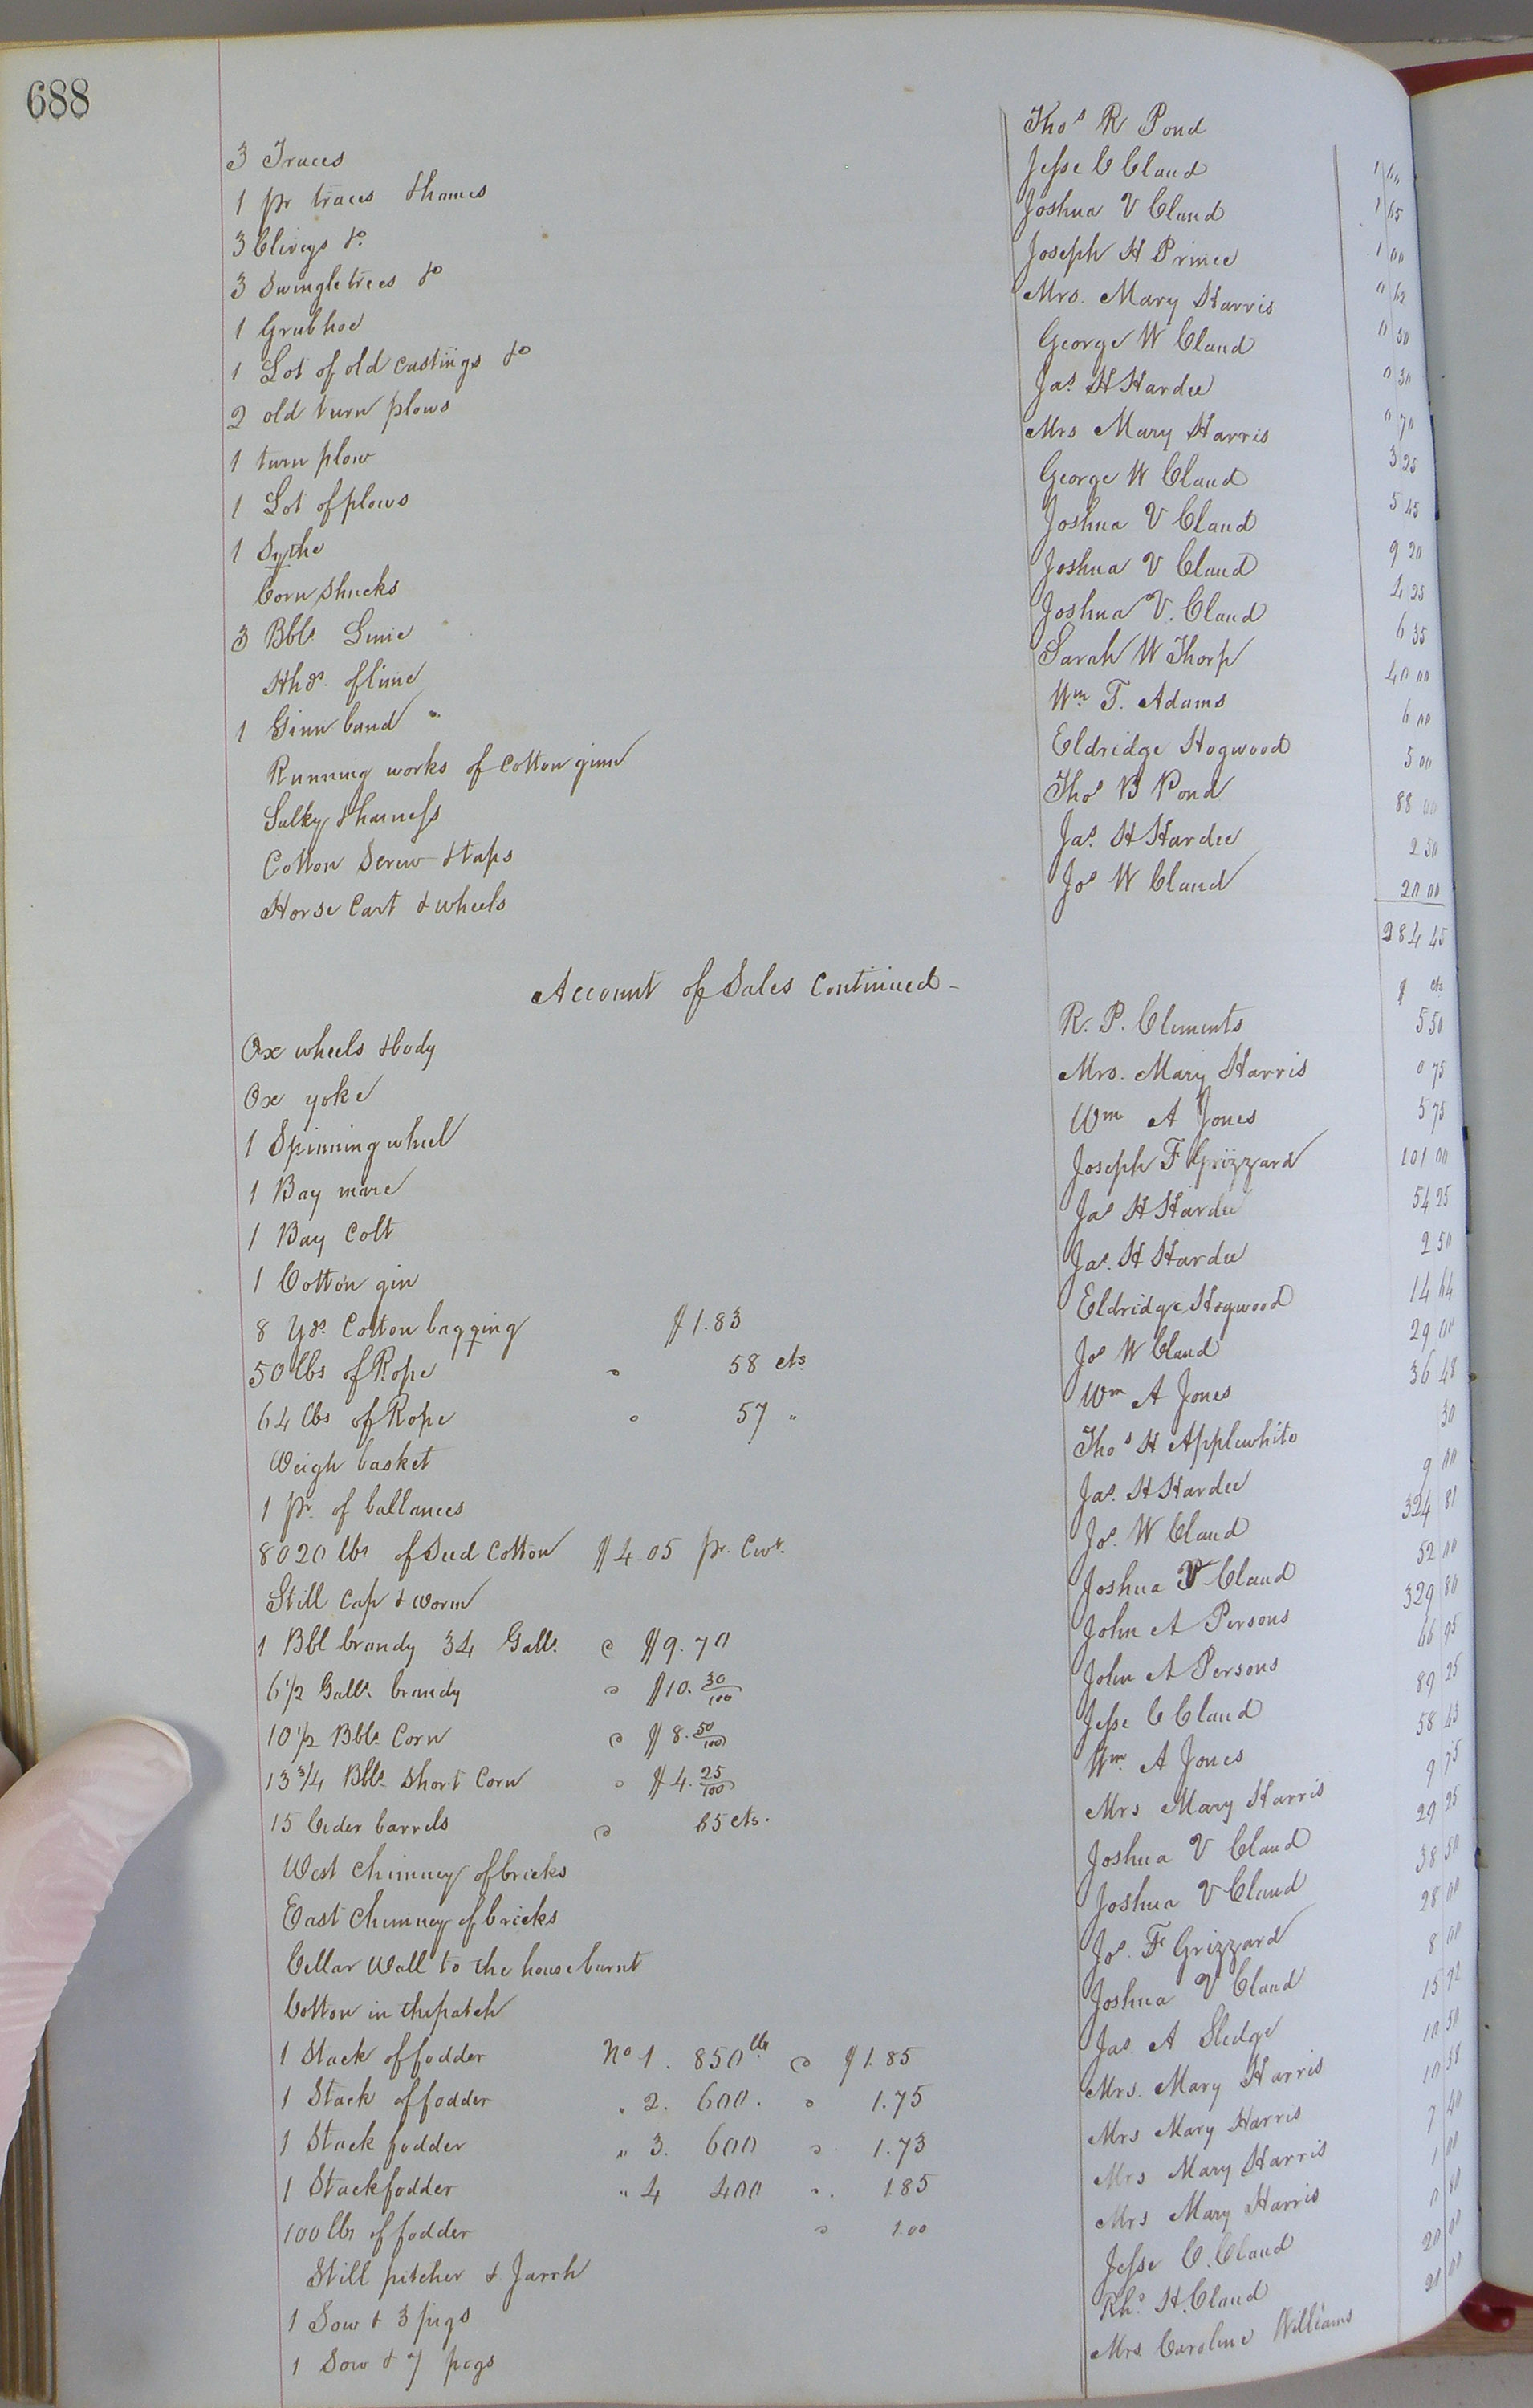 688
3 Traces Thos R Pond
1 pr traces & hames Jesse C Claud 1 60
3 Clivigs &c Joshua V Claud 1 65
3 Swingletrees &c Joseph H Prince 1 00
1 Grubhoe Mrs. Mary Harris
1 Lot of old castings &c George W Claud 0 50
2 old turn plows Jas. H Hardee 0 30
1 turn plow Mrs Mary Harris 0 70
1 Lot of plows George W Claud 3 25
1 Sythe Joshua V Claud
Corn shucks Joshua V Claud 9 20
3 Bbls Lime Joshua V. Claud 4 25
Hhds. of lime Sarah W Thorp 6 35
1 Ginn band Wm. T. Adams 40 00
Running works of Cotton ginn Eldridge Hogwood 6 00
Sulky & harness Thos B Pond 5 00
Cotton Screw & taps Jas. H Hardee 88 00
Horse Cart & wheels Jos W Claud 2 50
20 00
284 45
Account of Sales Continued - $ cts
Ox wheels & body R. P. Clements 5 50
Ox yoke Mrs. Mary Harris 0 75
1 Spinning wheel Wm A Jones 5 75
1 Bay mare Joseph F Grizzard 101 00
1 Bay Colt Jas H Hardee 54 25
1 Cotton gin Jas. H Hardee 2 50
8 Yds. Cotton bagging $1.83 Eldridge Hogwood 14 64
50 lbs of Rope " 58 cts Jos W Claud 29 00
64 lbs of Rope " 57 " Wm A Jones 36 48
Weigh basket Thos H Applewhite 30
1 pr. of ballances Jas. H Hardee 9 00
8020 lbs of Seed Cotton $4.05 pr. Cwt. Jos. W Claud 324 81
Still Cap & worm Joshua V Claud 52 00
1 Bbl brandy 34 Galls. @ $9.70 John A Persons 329 80
6 1/2 Galls. brandy " $10. 30/100 John A Persons 66 95
10 1/2 Bbls. Corn @ $8. 50/100 Jesse C Claud 89 25
13 3/4 Bbls. Short Corn " $4. 25/100 Wm. A Jones 58 43
15 Cider barrels @ 65 cts. Mrs Mary Harris 9 75
West Chimney of bricks Joshua V Claud 29 25
East Chimney of bricks Joshua V Claud 38 50
Cellar Wall to the house burnt Jos. F Grizzard 28 00
Cotton in the patch Joshua V Claud 8 00
1 Stack of fodder No 1. 850 lbs @ $1.85 Jas. A Sledge 15 72
1 Stack of fodder " 2. 600. " 1.75 Mrs. Mary Harris 10 50
1 Stack fodder " 3. 600 " 1.73 Mrs Mary Harris 10 38
1 Stack fodder " 4 400 " 1.85 Mrs Mary Harris 7 40
100 lbs of fodder " 1.00 Mrs Mary Harris 1 00
Still pitcher & Jarrh Jesse C. Claud 0 80
1 Sow & 3 pigs H. Claud 20 00
1 Sow & 7 pigs Mrs Caroline Williams 21 00